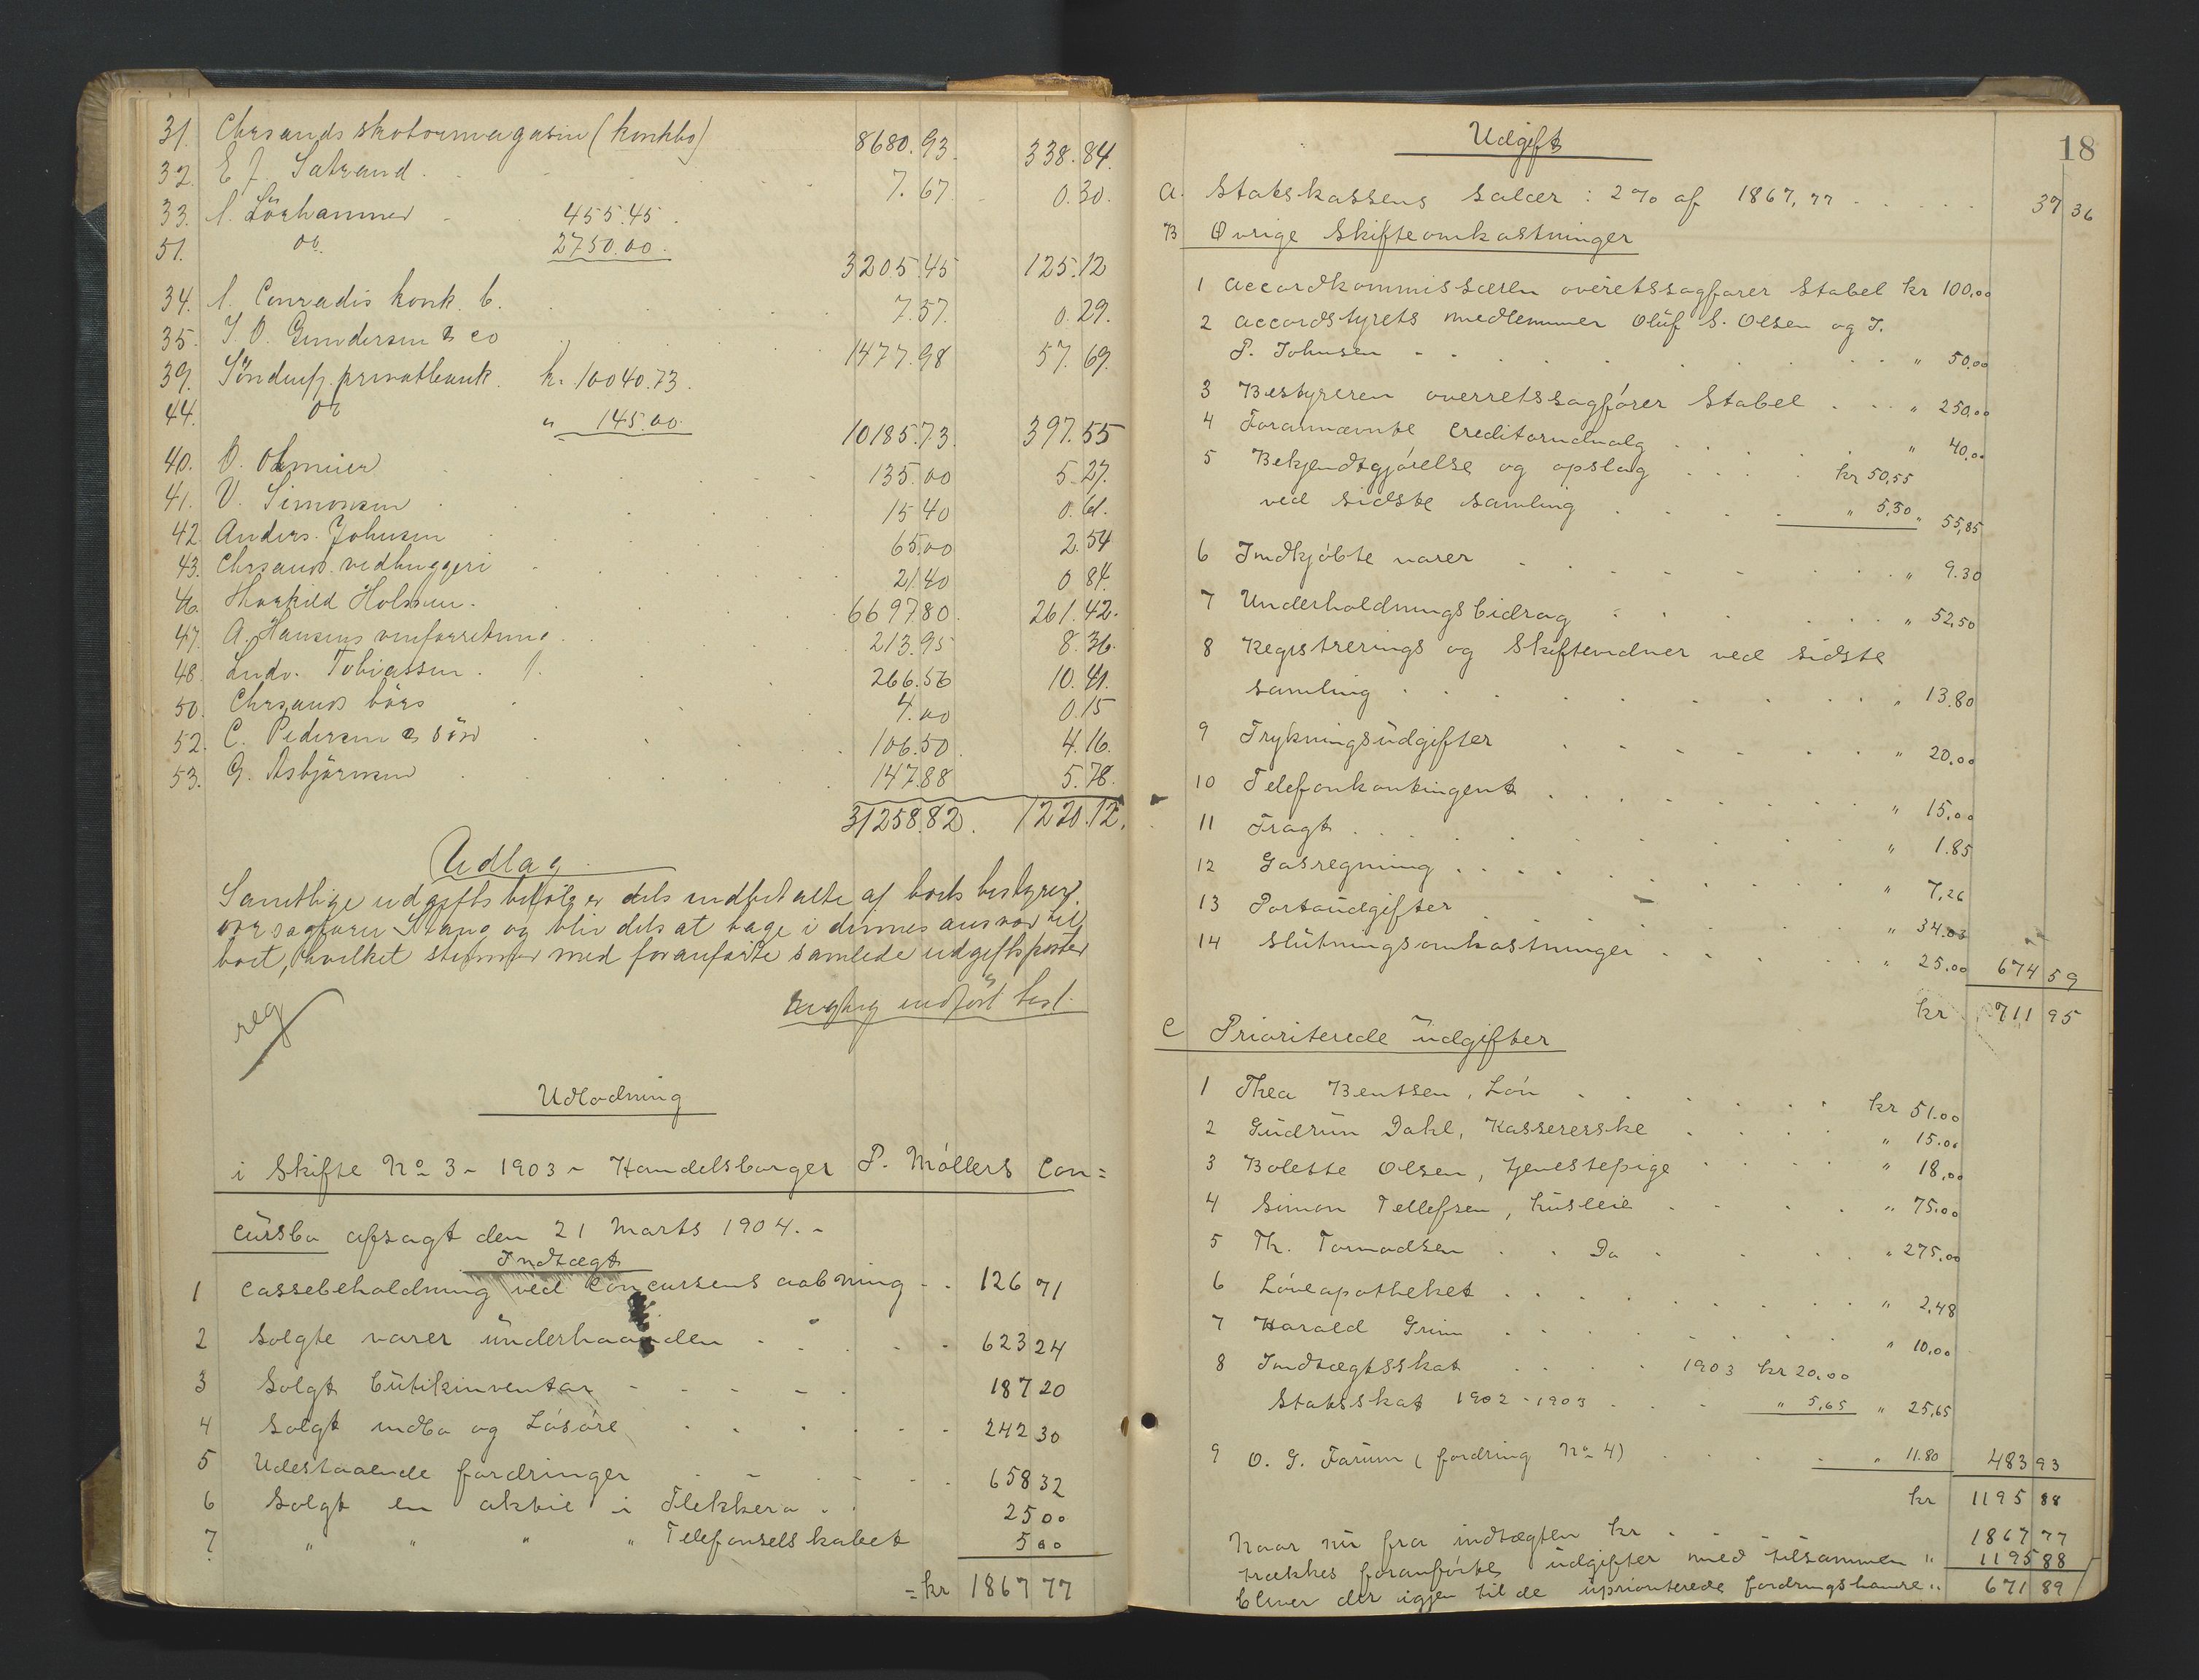 31. Chrsands skotøimagasin (konkbo) 8680.93. 338.84.
32. E J. Satrand. 7.67. 0.30.
33. 455.45.
51. do. 2750.00. 3205.45 125.12
34. Conradis konk. b. 7.57. 0.29.
35. J. O. Gundersen & co 1477.98 57.69.
39. Sønduf privatbank. kr. 10040.73.
44. do " 145.00. 10185.73. 397.55
40. O. 135.00 5.27.
41. V. Simonsen 15.40 0.61.
42. Anders Johnsen 65.00 2.54
43. Chrsands vedhuggeri 21.40 0.84.
46. Thorkild Holmen. 6697.80. 261.42.
47. A. Hansens vinforretning. 213.95 8.36.
48. Ludv. Tobiassen. 266.56 10.41.
50. Chrsands børs 4.00 0.15
52. C. Pedersen & søn 106.50 4.16.
53. G. Asbjørnsen 147.88 5.78.
31258.82. 1220.12.
Udlæg
Samtlige udgiftsbeløb er dels indbetalte af boets bestyrer,
ovrsagfører Stang og blir dels at tage i dennes ansvar til
boet, hvilket stemmer med foranførte samlede udgiftsposter
rigtig indført
reg
Udlodning
i Skifte No 3 - 1903 - Handelsborger P. Møllers Con=
cursbo afsagt den 21 Marts 1904. -
Indtægt
1 Cassebeholdning ved Concursens aabning - . 126 71
2 Solgte varer underhaanden 623 24
3 Solgt butikinventar 187 20
4 Solgt indbo og Løsøre 242 30
5 Udestaaende fordringer 658 32
6 Solgt en aktie i Flekkerø 25 00
7 " " " " Telefonselskabet 5 00
= kr 1867 77
18
Udgift
a. Statskassens Salær : 2% af 1867,77 37 36
B Øvrige Skifteomkostninger
1 Accordkommissæren overetssagfører Stabel kr 100,00
2 Accordstyrets medlemmer Oluf S. Olsen og J.
P. Johnsen " 50,00
3 Bestyreren overretssagfører Stabel " 250,00
4 Forannævnte Creditorudvalg " 40,00
5 Bekjendtgjørelse og opslag kr 50,55
ved sidste samling " 5,30 " 55,85
6 Indkjøbte varer " 9.30
7 Underholdningsbidrag " 52,50
8 Registrerings og Skiftevidner ved sidste
samling " 13.80
9 Trykningsudgifter " 20.00
10 Telefonkontingent " 15,00
11 Fragt " 1.85
12 Gasregning " 7,26
13 Portoudgifter " 34.03
14 Slutningsomkostninger " 25.00 674 59
kr 711 95
C Prioriterede udgifter
1 Thea Bentsen, Løn kr 51.00
2 Gudrun Dahl, Kassererske " 15.00
3 Bolette Olsen, tjenestepige " 18,00
4 Simon Tellefsen, husleie " 75.00
5 Th. Tormodsen Do " 275.00
6 Løveapotheket " 2,48
7 Harald Grim " 10,00
8 Indtægtsskat 1903 kr 20,00
Statsskat 1902 - 1903 " 5,65 " 25,65
9 O. G. Farum (fordring No 4) " 11.80 483 93
kr 1195 88
Naar nu fra indtægten kr 1867 77
trækkes foranførte udgifter med tilsammen " 1195 88
bliver der igjen til de uprioriterede fordringshavere " 671 89